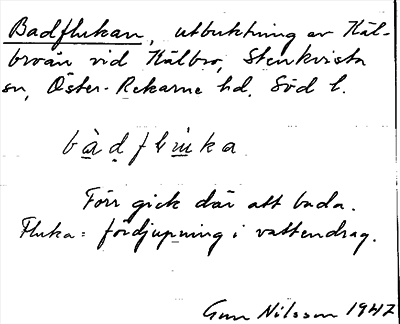 Badflukan, utbuktning av Käl-
broån vid Kälbro, Stenkvista
sn, Öster-Rekarne hd, Söd l.
bàdflɯka
Förr gick där att bada.
Fluka = fördjupning i vattendrag.
Gun Nilsson 1947